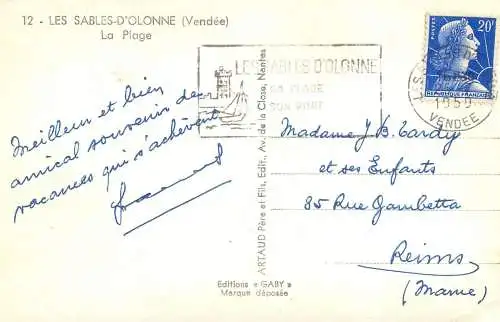 12 - LES SABLES-D'OLONNE (Vendée)
La Plage
LES SABLES D'OLONNE
SA PLAGE
SON PORT
POSTES
20F
REPUBLIQUE FRANÇAISE
1959
VENDEE
Meilleur et bien
amical souvenir de
vacances qui s'achèvent
ARTAUD Père et Fils, Edit., Av. de la Close, Nantes
Madame J. B. Tardy
et ses Enfants
85 Rue Gambetta
Reims
(Marne)
Editions « GABY »
Marque déposée